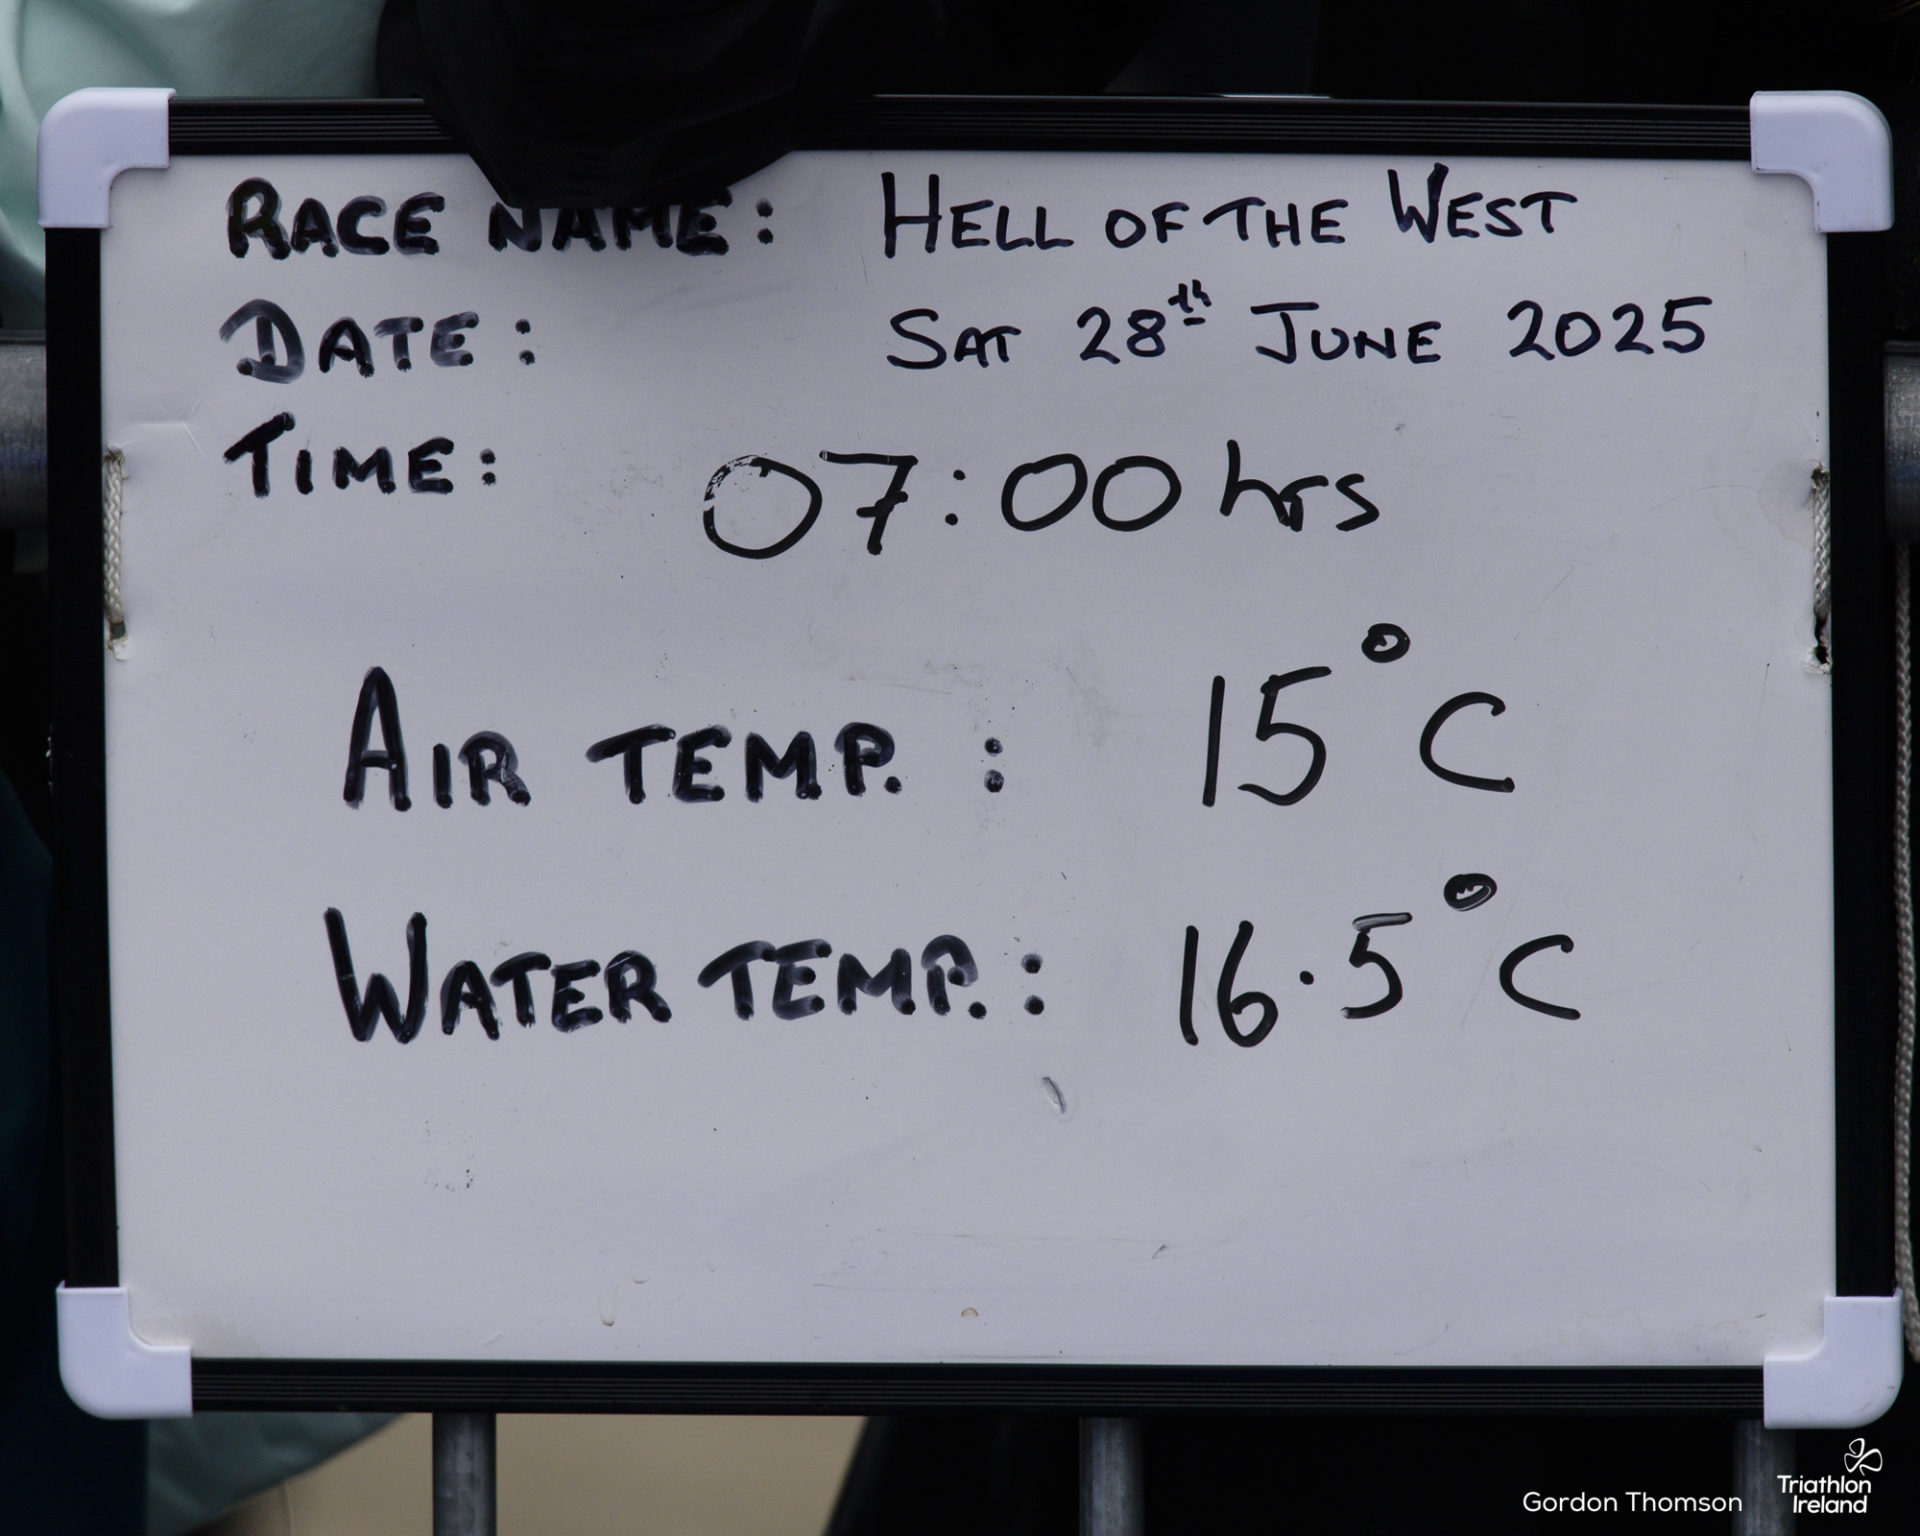 RACE NAME: HELL OF THE WEST
DATE: SAT 28th JUNE 2025
TIME: 07:00 hrs
AIR TEMP. : 15°C
WATER TEMP. : 16.5°C
Gordon Thomson
Triathlon
Ireland